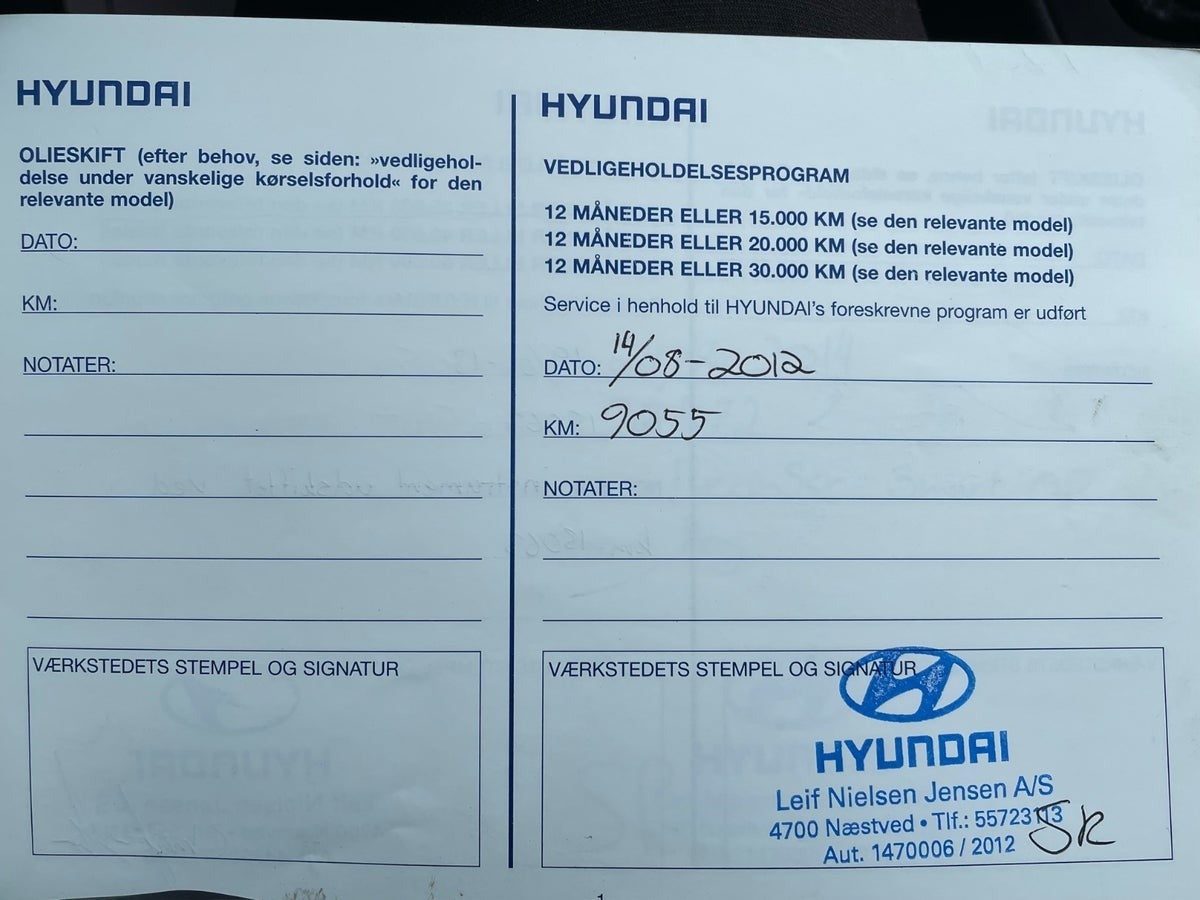 HYUNDAI
OLIESKIFT (efter behov, se siden: »vedligehol-
delse under vanskelige kørselsforhold« for den
relevante model)
DATO:
KM:
NOTATER:
VÆRKSTEDETS STEMPEL OG SIGNATUR
HYUNDAI
VEDLIGEHOLDELSESPROGRAM
12 MÅNEDER ELLER 15.000 KM (se den relevante model)
12 MÅNEDER ELLER 20.000 KM (se den relevante model)
12 MÅNEDER ELLER 30.000 KM (se den relevante model)
Service i henhold til HYUNDAI's foreskrevne program er udført
DATO: 14/08-2012
KM: 9055
NOTATER:
VÆRKSTEDETS STEMPEL OG SIGNATUR
HYUNDAI
Leif Nielsen Jensen A/S
4700 Næstved • Tlf.: 55723113
Aut. 1470006 / 2012
1